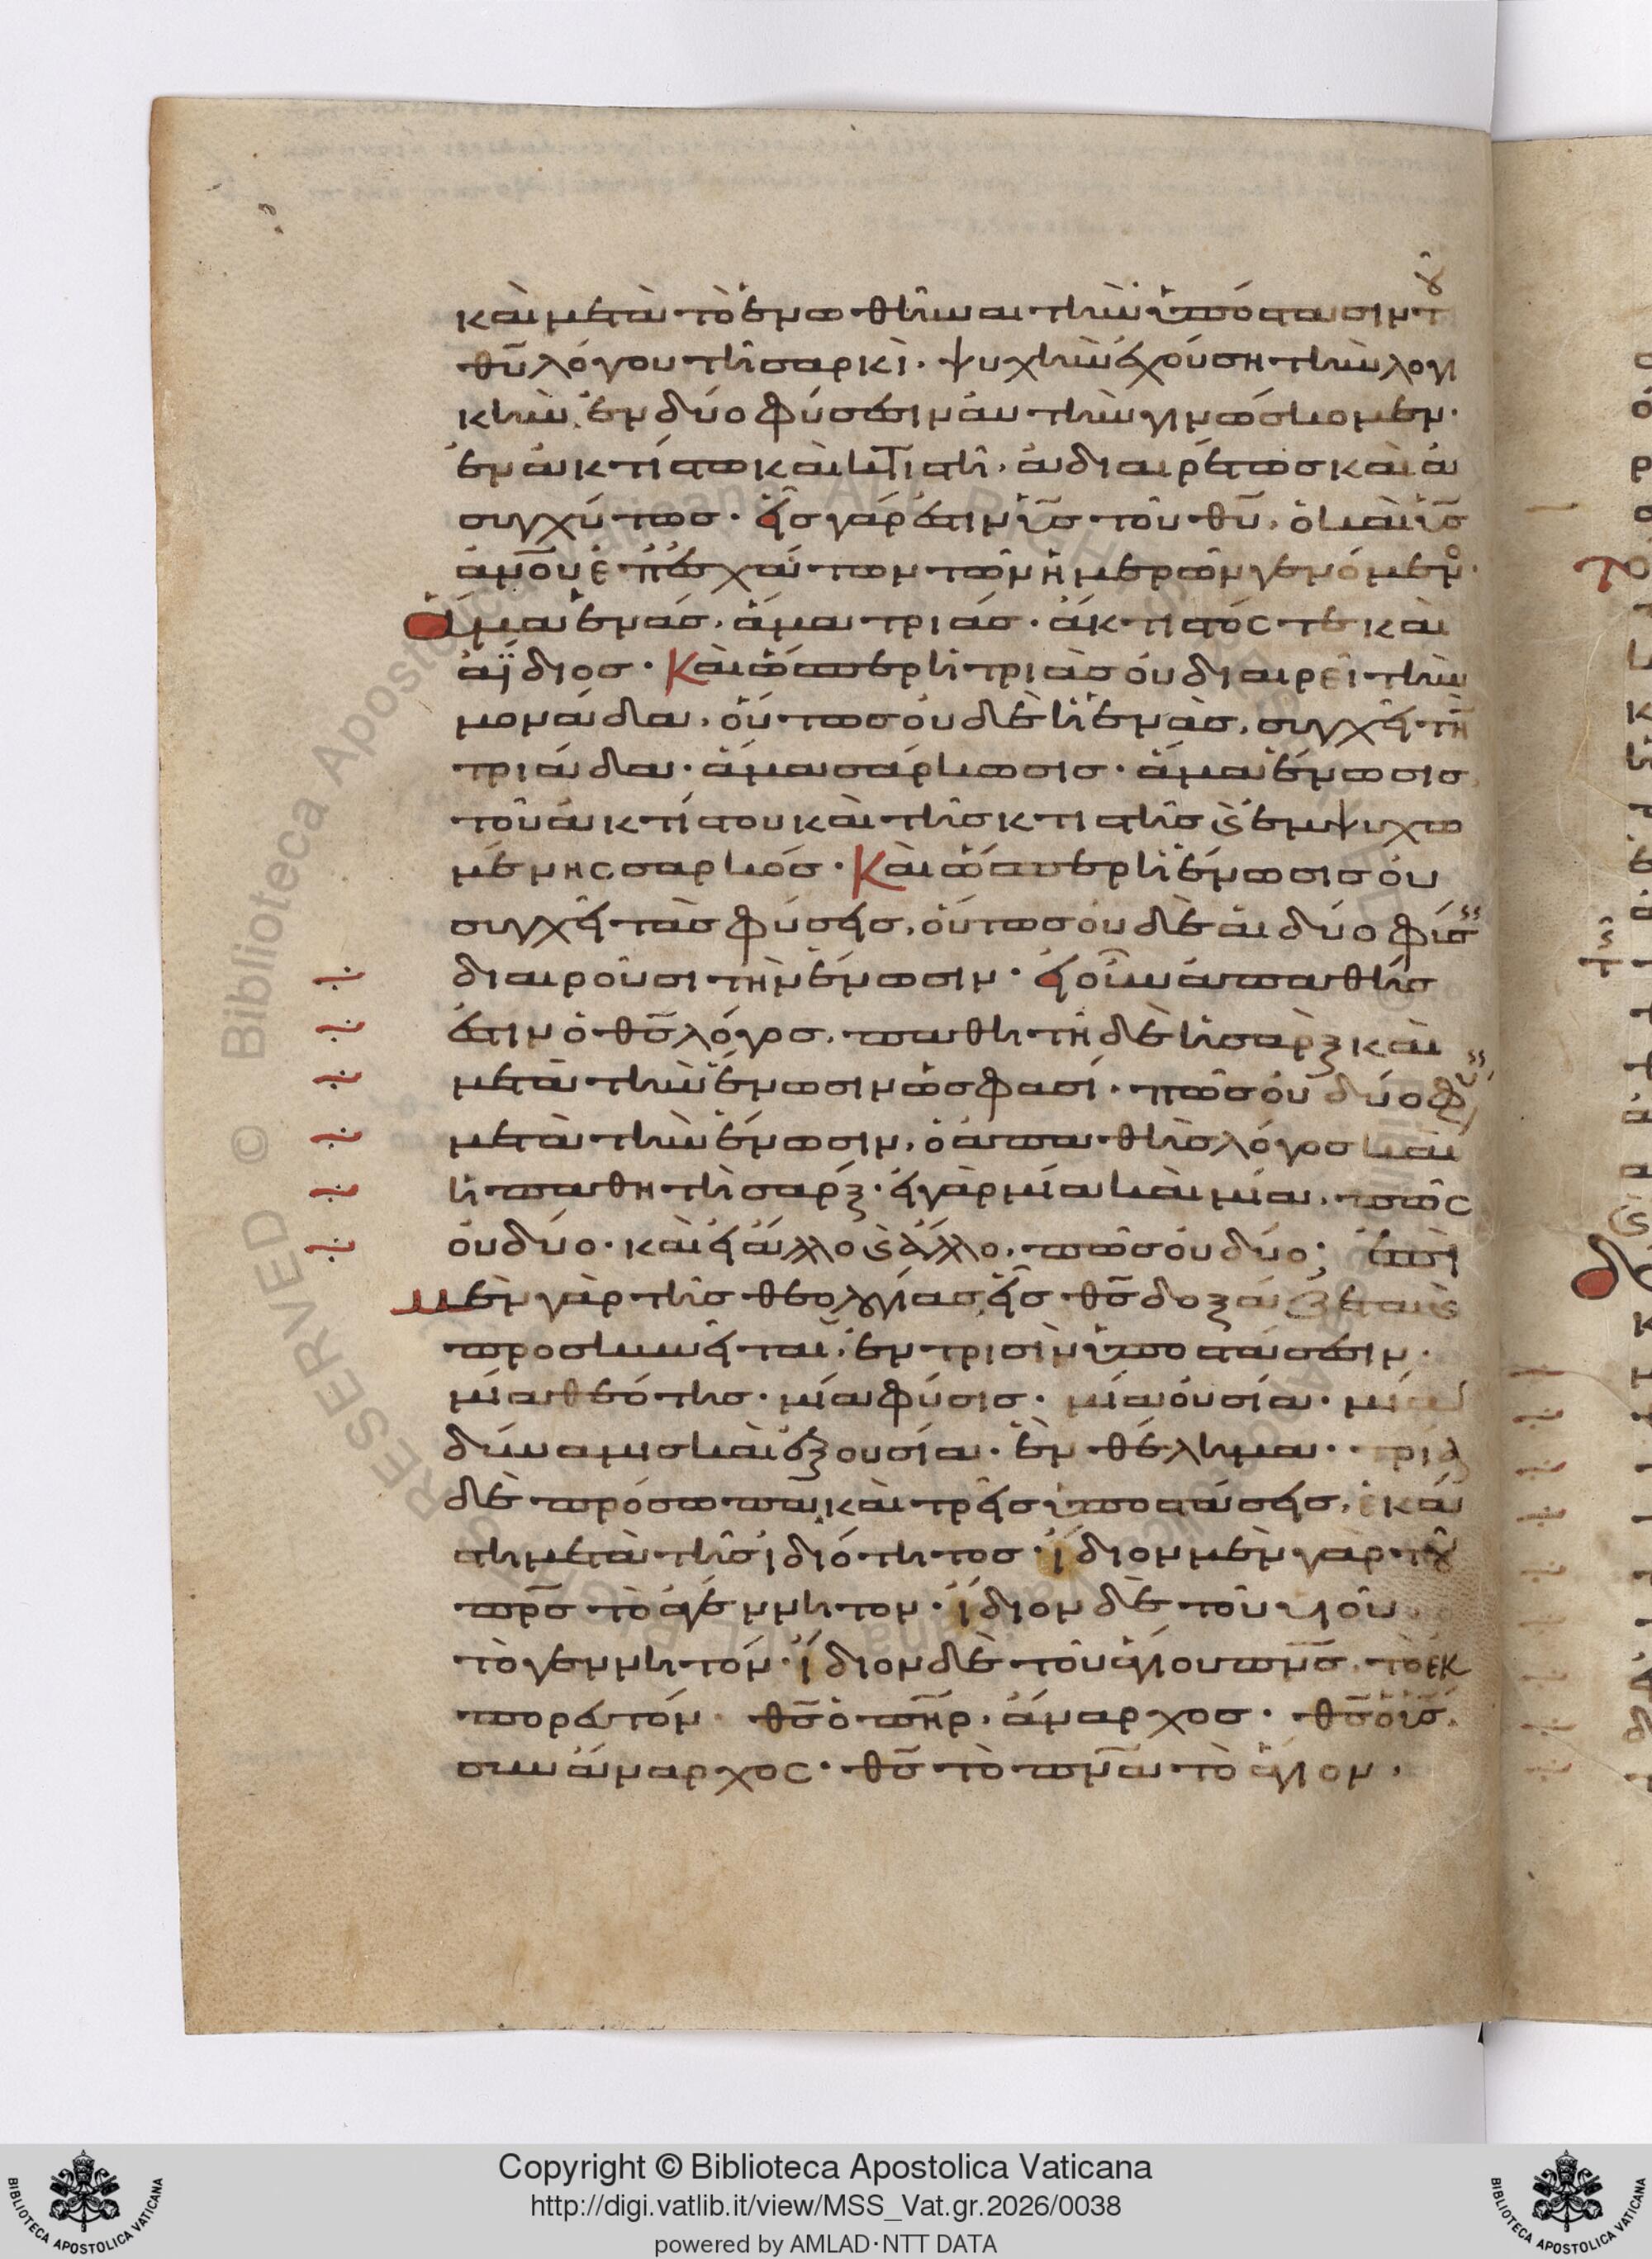 καὶ μετὰ τὸ ἑνωθῆναι τὴν ὑπόστασιν τοῦ
θυ λόγου τῆ σαρκὶ. ψυχὴν ἐχούση τὴν λογι
κὴν. ἐν δύο φύσεσιν αὐτὴν γινώσκομεν.
ἐν ἀκτίστω καὶ κτιστῆ. ἀδιαιρέτως καὶ ἀ
συγχύτως. εἷς γάρ ἐστιν υς τοῦ θυ. ὁ καὶ υς
ανου ἐπεσχάτων τῶν ἡμερῶν γενόμενο.
Ἅμα ἑνάς. ἅμα τριάς. ἄκτιστός τε καὶ
ἀΐδιος. Καὶ ὥσπερ ἡ τριὰς οὐ διαιρεῖ τὴν
μονάδα. οὕτως οὐδὲ ἡ ἑνὰς, συγχεῖ τὴν
τριάδα. ἅμα σάρκωσις. ἅμα ἕνωσις
τοῦ ἀκτίστου καὶ τῆς κτιστῆς ϛ ἐμψυχω
μένης σαρκός. Καὶ ὥσπερ ἡ ἕνωσις οὐ
συγχεῖ τὰς φύσεις, οὕτως οὐδὲ αἱ δύο φύσ
διαιροῦσι τὴν ἕνωσιν. εἰ οὖν ἀπαθής
ἐστιν ὁ θς λόγος. παθητὴ δὲ ἡ σαρξ καὶ
μετὰ τὴν ἕνωσιν ὥς φασί. πῶς οὐ δύο φύ
μετὰ τὴν ἕνωσιν, ὁ ἀπαθὴς λόγος καὶ
ἡ παθητὴ σαρξ. εἰ γὰρ μία καὶ μία. πῶς
οὐ δύο. καὶ εἰ ἄλλο ϛ ἄλλο. πῶς οὐ δύο; ἐπὶ
μὲν γὰρ τῆς θεολογίας εἷς θς δοξάζεται ϛ
προσκυνεῖται. ἐν τρισὶν ὑποστάσεσιν.
μία θεότης. μία φύσις. μία οὐσία. μία
δύναμις καὶ ἐξουσία. ἓν θέλημα. τρία
δὲ πρόσωπα. καὶ τρεῖς ὑποστάσεις. ἑκά
στη μετὰ τῆς ἰδιότητος. ἴδιον μὲν γὰρ τοῦ
πρς τὸ ἀγέννητον. ἴδιον δὲ τοῦ υἱοῦ
τὸ γεννητόν. ἴδιον δὲ τοῦ ἁγίου πνς. τὸ ἐκ
πορευτόν. θς ὁ πηρ. ἄναρχος. θς ὁ υς.
συνάναρχος. θς τὸ πνα τὸ ἅγιον.
Copyright © Biblioteca Apostolica Vaticana
http://digi.vatlib.it/view/MSS_Vat.gr.2026/0038
powered by AMLAD·NTT DATA